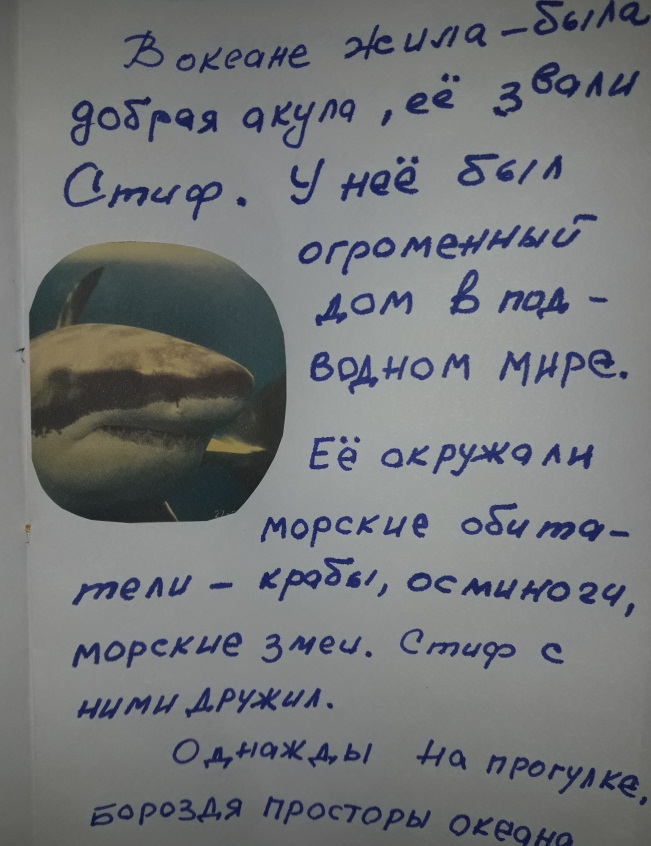 В океане жила-была
добрая акула, её звали
Стиф. У неё был
огроменный
дом в под-
водном мире.
Её окружали
морские обита-
тели - крабы, осминоги,
морские змеи. Стиф с
ними дружил.
Однажды на прогулке,
бороздя просторы океана